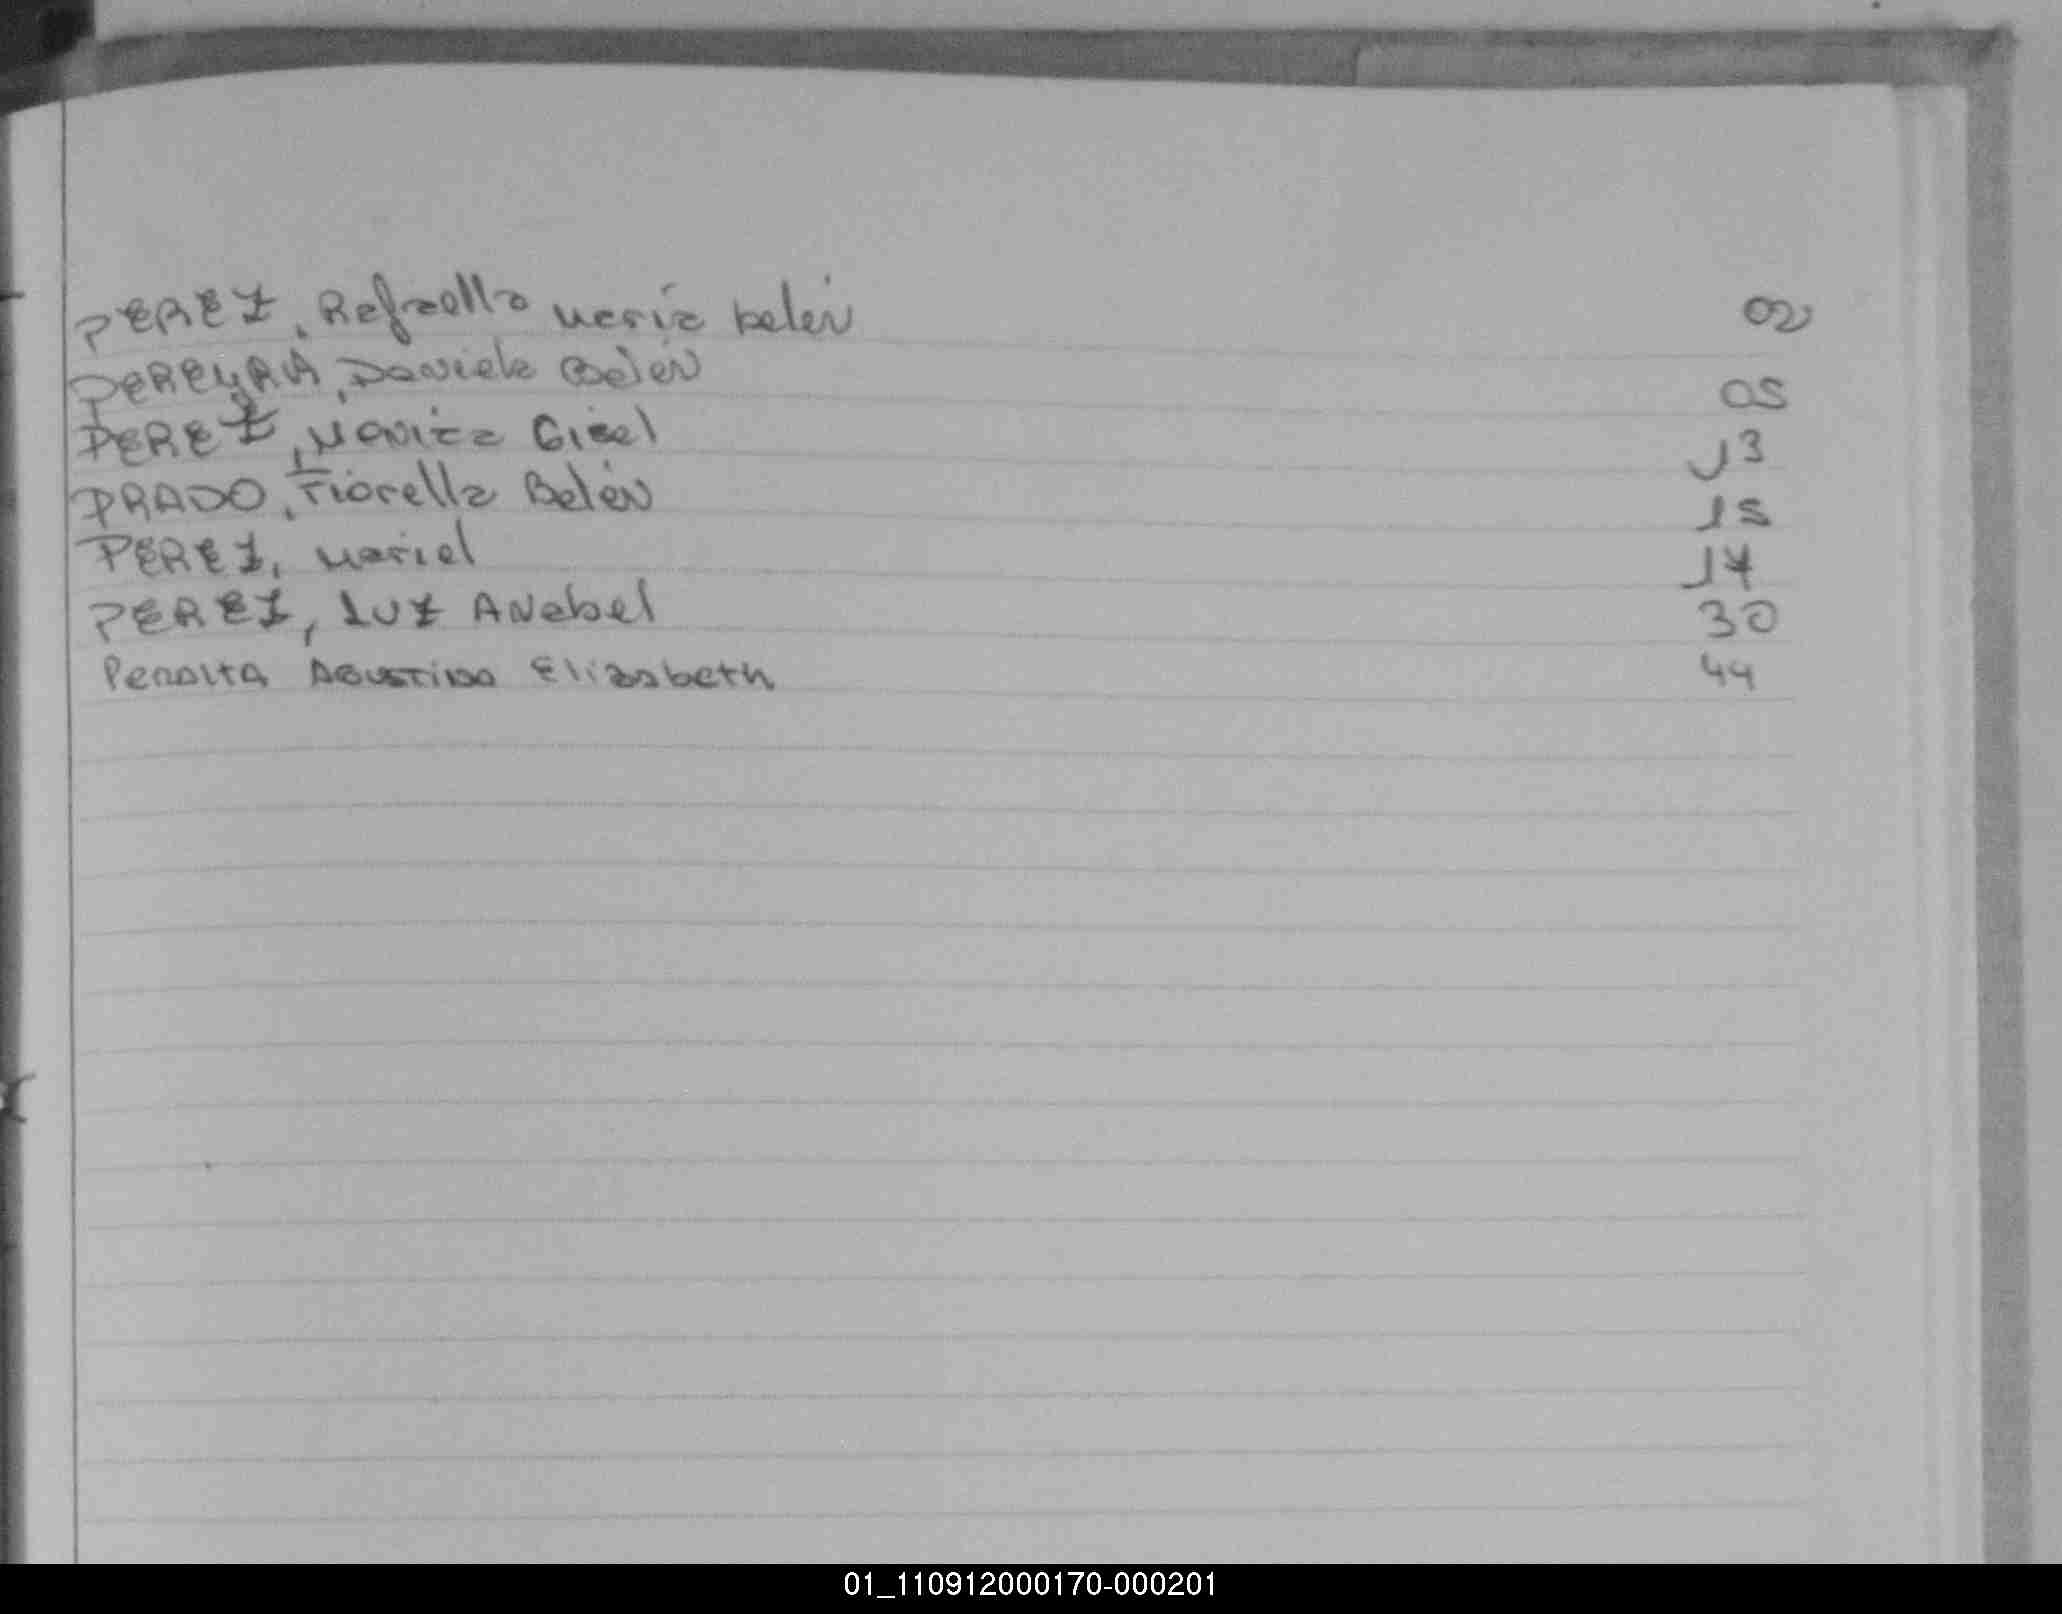 PEREZ, Rafaella María belén 02
PEREYRA, Daniela Belén 05
PEREZ, Marica Gisel 13
PRADO, Fiorella Belén 15
PEREZ, Mariel 17
PEREZ, LUZ ANabel 30
Peralta Agustina Elizabeth 44
01_110912000170-000201